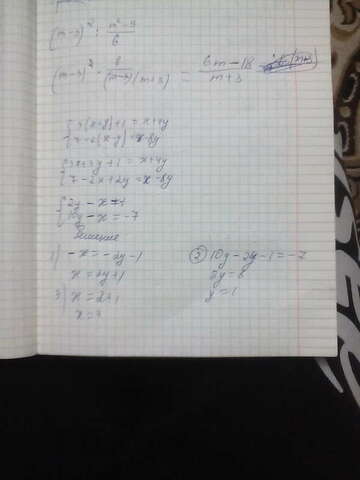 (m-3)² : (m²-9)/6
(m-3)² · 6/((m-3)(m+3)) = (6m-18)/(m+3)
{ (x+y)+1 = x+4y
{ 7-2(x-y) = x-8y
{ 3x+3y+1 = x+4y
{ 7-2x+2y = x-8y
{ 2y - x = -1
{ 10y - x = -7
Решение
1) -x = -2y-1
x = 2y+1
2) 10y-2y-1 = -7
y = 1
3) x = 2+1
x = 3